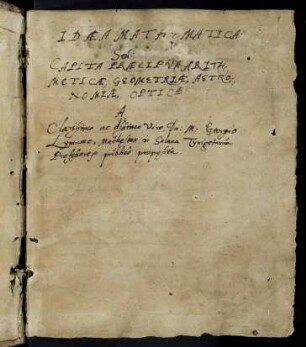 IDÆA MATHEMATICA
Seu
CAPITA PRÆCIPUA ARITH
METICÆ, GEOMETRIÆ, ASTRO
NOMIÆ, OPTICÆ
A
Clarissimo ac doctissimo Viro, Dn: M. Georgio
Limnæo, Matheseos in Salana
Professore publicè proposita